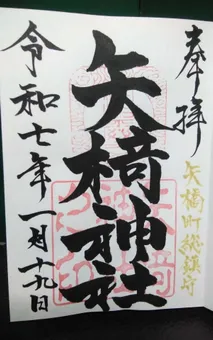 奉拝
矢橋町総鎮守
矢橋神社
令和七年一月十九日